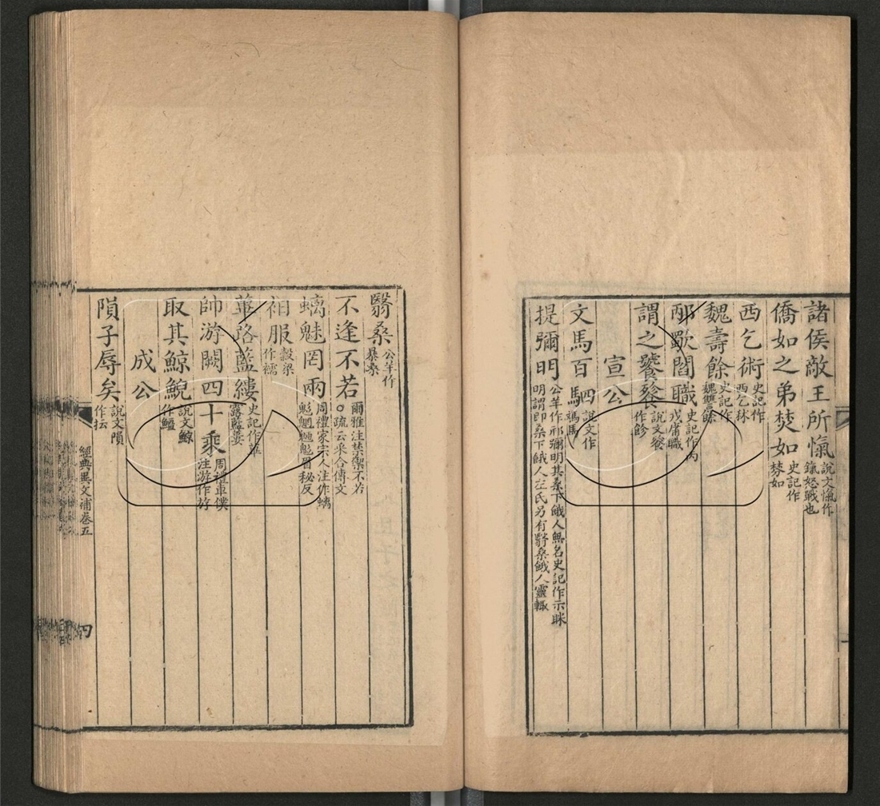 諸侯敵王所愾 說文愾作鎎怒戰也
僑如之弟焚如 史記作棼如
西乞術 史記作西乞秫
魏壽餘 史記作魏讐餘
邴歜閻職 史記作丙戎庸職
謂之饕餮 說文餮作飻
宣公
文馬百駟 說文作䮍馬
提彌明 公羊作祁彌明其桑下餓人無名史記作示眯明謂即桑下餓人左氏另有翳桑餓人靈輒
翳桑 公羊作暴桑
不逢不若 爾雅注禁禦不若○疏云采合傳文
螭魅罔兩 周禮家宗人注作螭魅魍魎魅眉秘反
衵服 穀梁作襦
篳路藍縷 史記作
帥游闕四十乘 周禮車僕注游作斿
取其鯨鯢 說文鯨作䲔
成公
隕子辱矣 說文隕作抎
經典異文補卷五
四